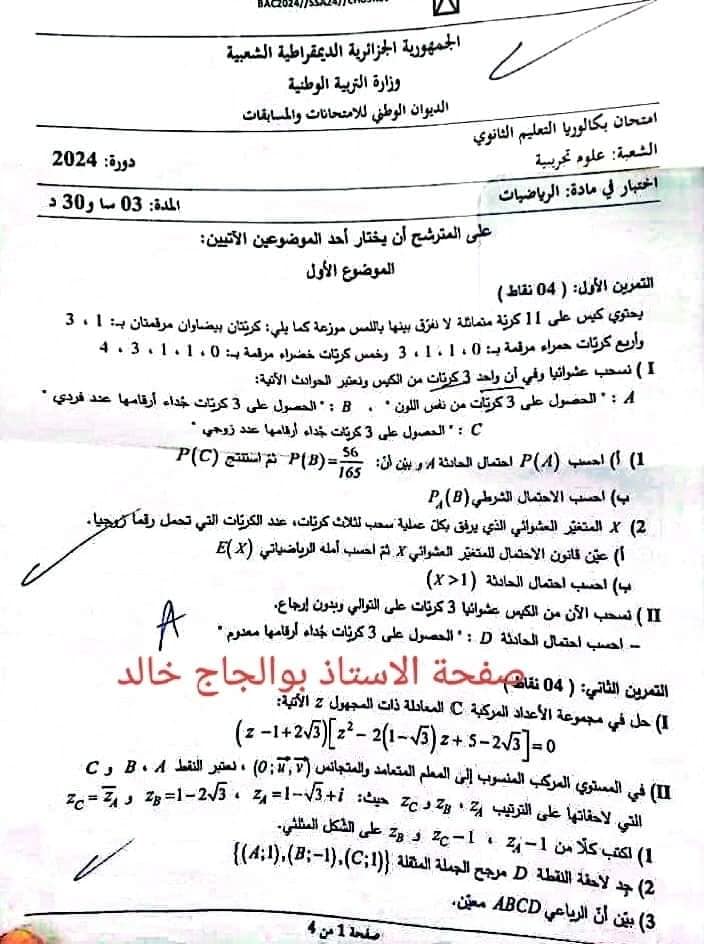 الجمهورية الجزائرية الديمقراطية الشعبية
وزارة التربية الوطنية
الديوان الوطني للامتحانات والمسابقات
امتحان بكالوريا التعليم الثانوي
الشعبة: علوم تجريبية
دورة: 2024
اختبار في مادة: الرياضيات
المدة: 03 سا و30 د
على المترشح أن يختار أحد الموضوعين الآتيين:
الموضوع الأول
التمرين الأول: ( 04 نقاط )
يحتوي كيس على 11 كرية متماثلة لا نفرق بينها باللمس موزعة كما يلي: كريتان بيضاوان مرقمتان بـ: 1 ، 3
وأربع كريات حمراء مرقمة بـ: 0 ، 1 ، 1 ، 3 وخمس كريات خضراء مرقمة بـ: 0 ، 1 ، 1 ، 3 ، 4
I ) نسحب عشوائيا وفي آن واحد 3 كريات من الكيس ونعتبر الحوادث الآتية:
A : " الحصول على 3 كريات من نفس اللون " ، B : " الحصول على 3 كريات جُداء أرقامها عدد فردي "
C : " الحصول على 3 كريات جُداء أرقامها عدد زوجي "
1) أ) احسب P(A) احتمال الحادثة A و بيّن أنّ: P(B)=56/165 ثم استنتج P(C)
ب) احسب الاحتمال الشرطي P_A(B)
2) X المتغيّر العشوائي الذي يرفق بكل عملية سحب لثلاث كريات، عدد الكريات التي تحمل رقما زوجيا.
أ) عيّن قانون الاحتمال للمتغيّر العشوائي X ثمّ احسب أمله الرياضياتي E(X)
ب) احسب احتمال الحادثة (X>1)
II ) نسحب الآن من الكيس عشوائيا 3 كريات على التوالي وبدون إرجاع.
– احسب احتمال الحادثة D : " الحصول على 3 كريات جُداء أرقامها معدوم "
A
صفحة الاستاذ بوالجاج خالد
التمرين الثاني: ( 04 نقاط )
I) حل في مجموعة الأعداد المركبة ℂ المعادلة ذات المجهول z الآتية:
(z −1+2√3)[z²−2(1−√3)z+5−2√3]=0
II) في المستوي المركب المنسوب إلى المعلم المتعامد والمتجانس (O;u⃗,v⃗) ، نعتبر النقط A ، B و C
التي لاحقاتها على الترتيب z_A ، z_B و z_C حيث: z_A=1−√3+i ، z_B=1−2√3 و z_C=z̅_A
1) اكتب كلّا من z_A−1 ، z_C−1 و z_B على الشكل المثلثي.
2) جد لاحقة النقطة D مرجح الجملة المثقلة {(A;1),(B;−1),(C;1)}
3) بيّن أنّ الرباعي ABCD معيّن.
صفحة 1 من 4